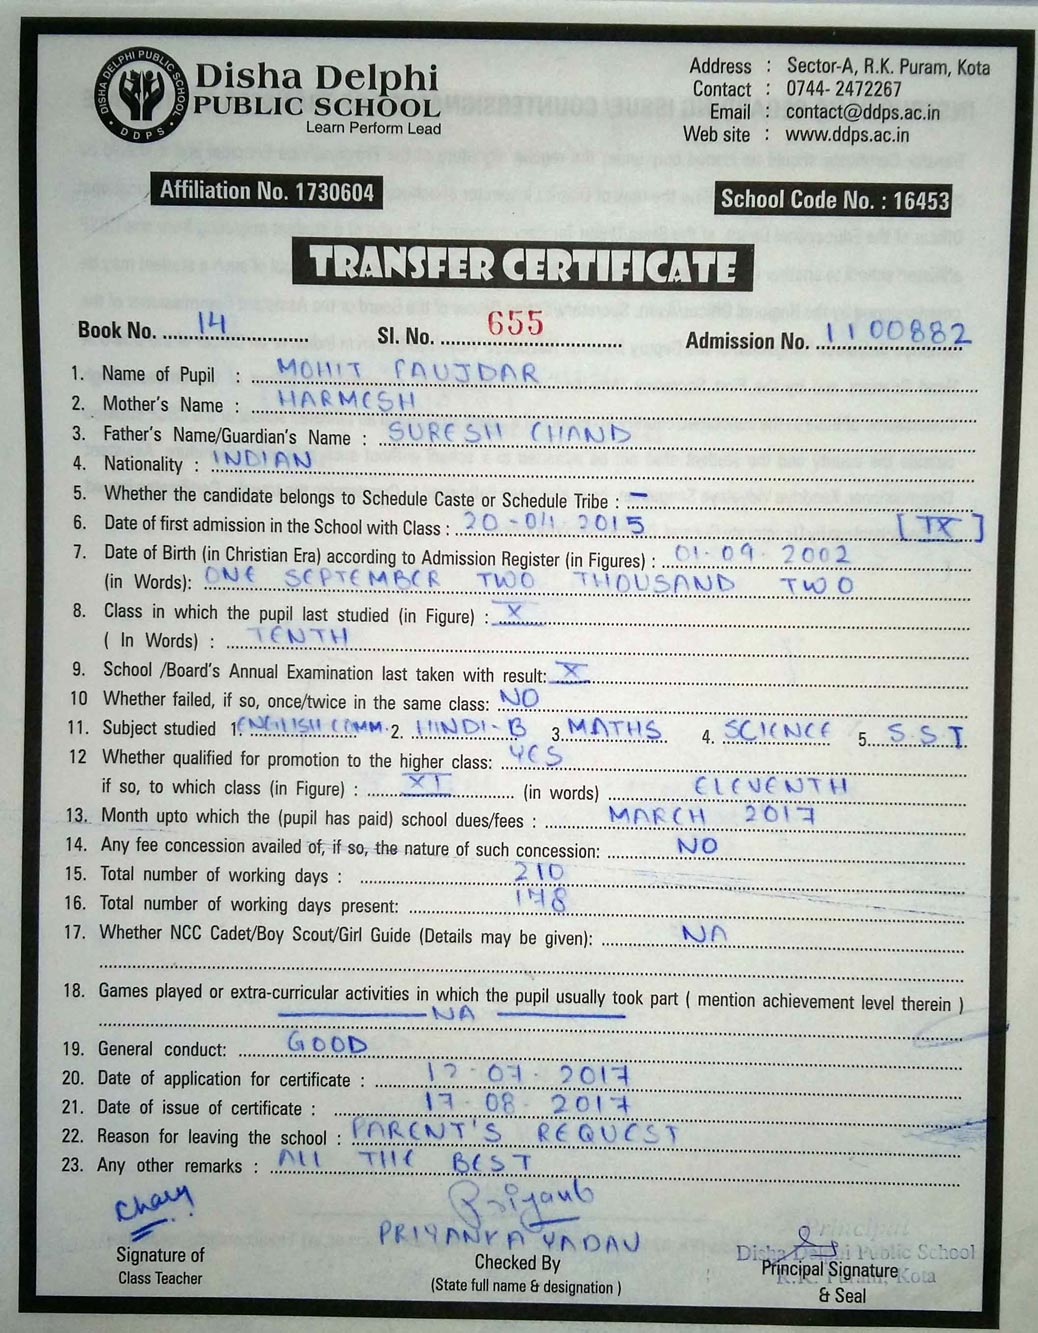 DISHA DELPHI PUBLIC SCHOOL
DDPS
Disha Delphi
PUBLIC SCHOOL
Learn Perform Lead
Address : Sector-A, R.K. Puram, Kota
Contact : 0744- 2472267
Email : contact@ddps.ac.in
Web site : www.ddps.ac.in
Affiliation No. 1730604
School Code No. : 16453
TRANSFER CERTIFICATE
Book No. 14 Sl. No. 655 Admission No. 1100882
1. Name of Pupil : MOHIT FAUJDAR
2. Mother's Name : HARMESH
3. Father's Name/Guardian's Name : SURESH CHAND
4. Nationality : INDIAN
5. Whether the candidate belongs to Schedule Caste or Schedule Tribe : –
6. Date of first admission in the School with Class : 20-04-2015 [IX]
7. Date of Birth (in Christian Era) according to Admission Register (in Figures) : 01-09-2002
(in Words): ONE SEPTEMBER TWO THOUSAND TWO
8. Class in which the pupil last studied (in Figure) : X
( In Words) : TENTH
9. School /Board's Annual Examination last taken with result: X
10 Whether failed, if so, once/twice in the same class: NO
11. Subject studied 1. ENGLISH COMM. 2. HINDI-B 3 MATHS 4. SCIENCE 5. S.S.T.
12 Whether qualified for promotion to the higher class: YES
if so, to which class (in Figure) : XI (in words) ELEVENTH
13. Month upto which the (pupil has paid) school dues/fees : MARCH 2017
14. Any fee concession availed of, if so, the nature of such concession: NO
15. Total number of working days : 210
16. Total number of working days present: 148
17. Whether NCC Cadet/Boy Scout/Girl Guide (Details may be given): NA
18. Games played or extra-curricular activities in which the pupil usually took part ( mention achievement level therein )
NA
19. General conduct: GOOD
20. Date of application for certificate : 17-07-2017
21. Date of issue of certificate : 17-08-2017
22. Reason for leaving the school : PARENT'S REQUEST
23. Any other remarks : ALL THE BEST
PRIYANKA YADAV
Principal
Disha Delphi Public School
R.K. Puram, Kota
Signature of
Class Teacher
Checked By
(State full name & designation )
Principal Signature
& Seal